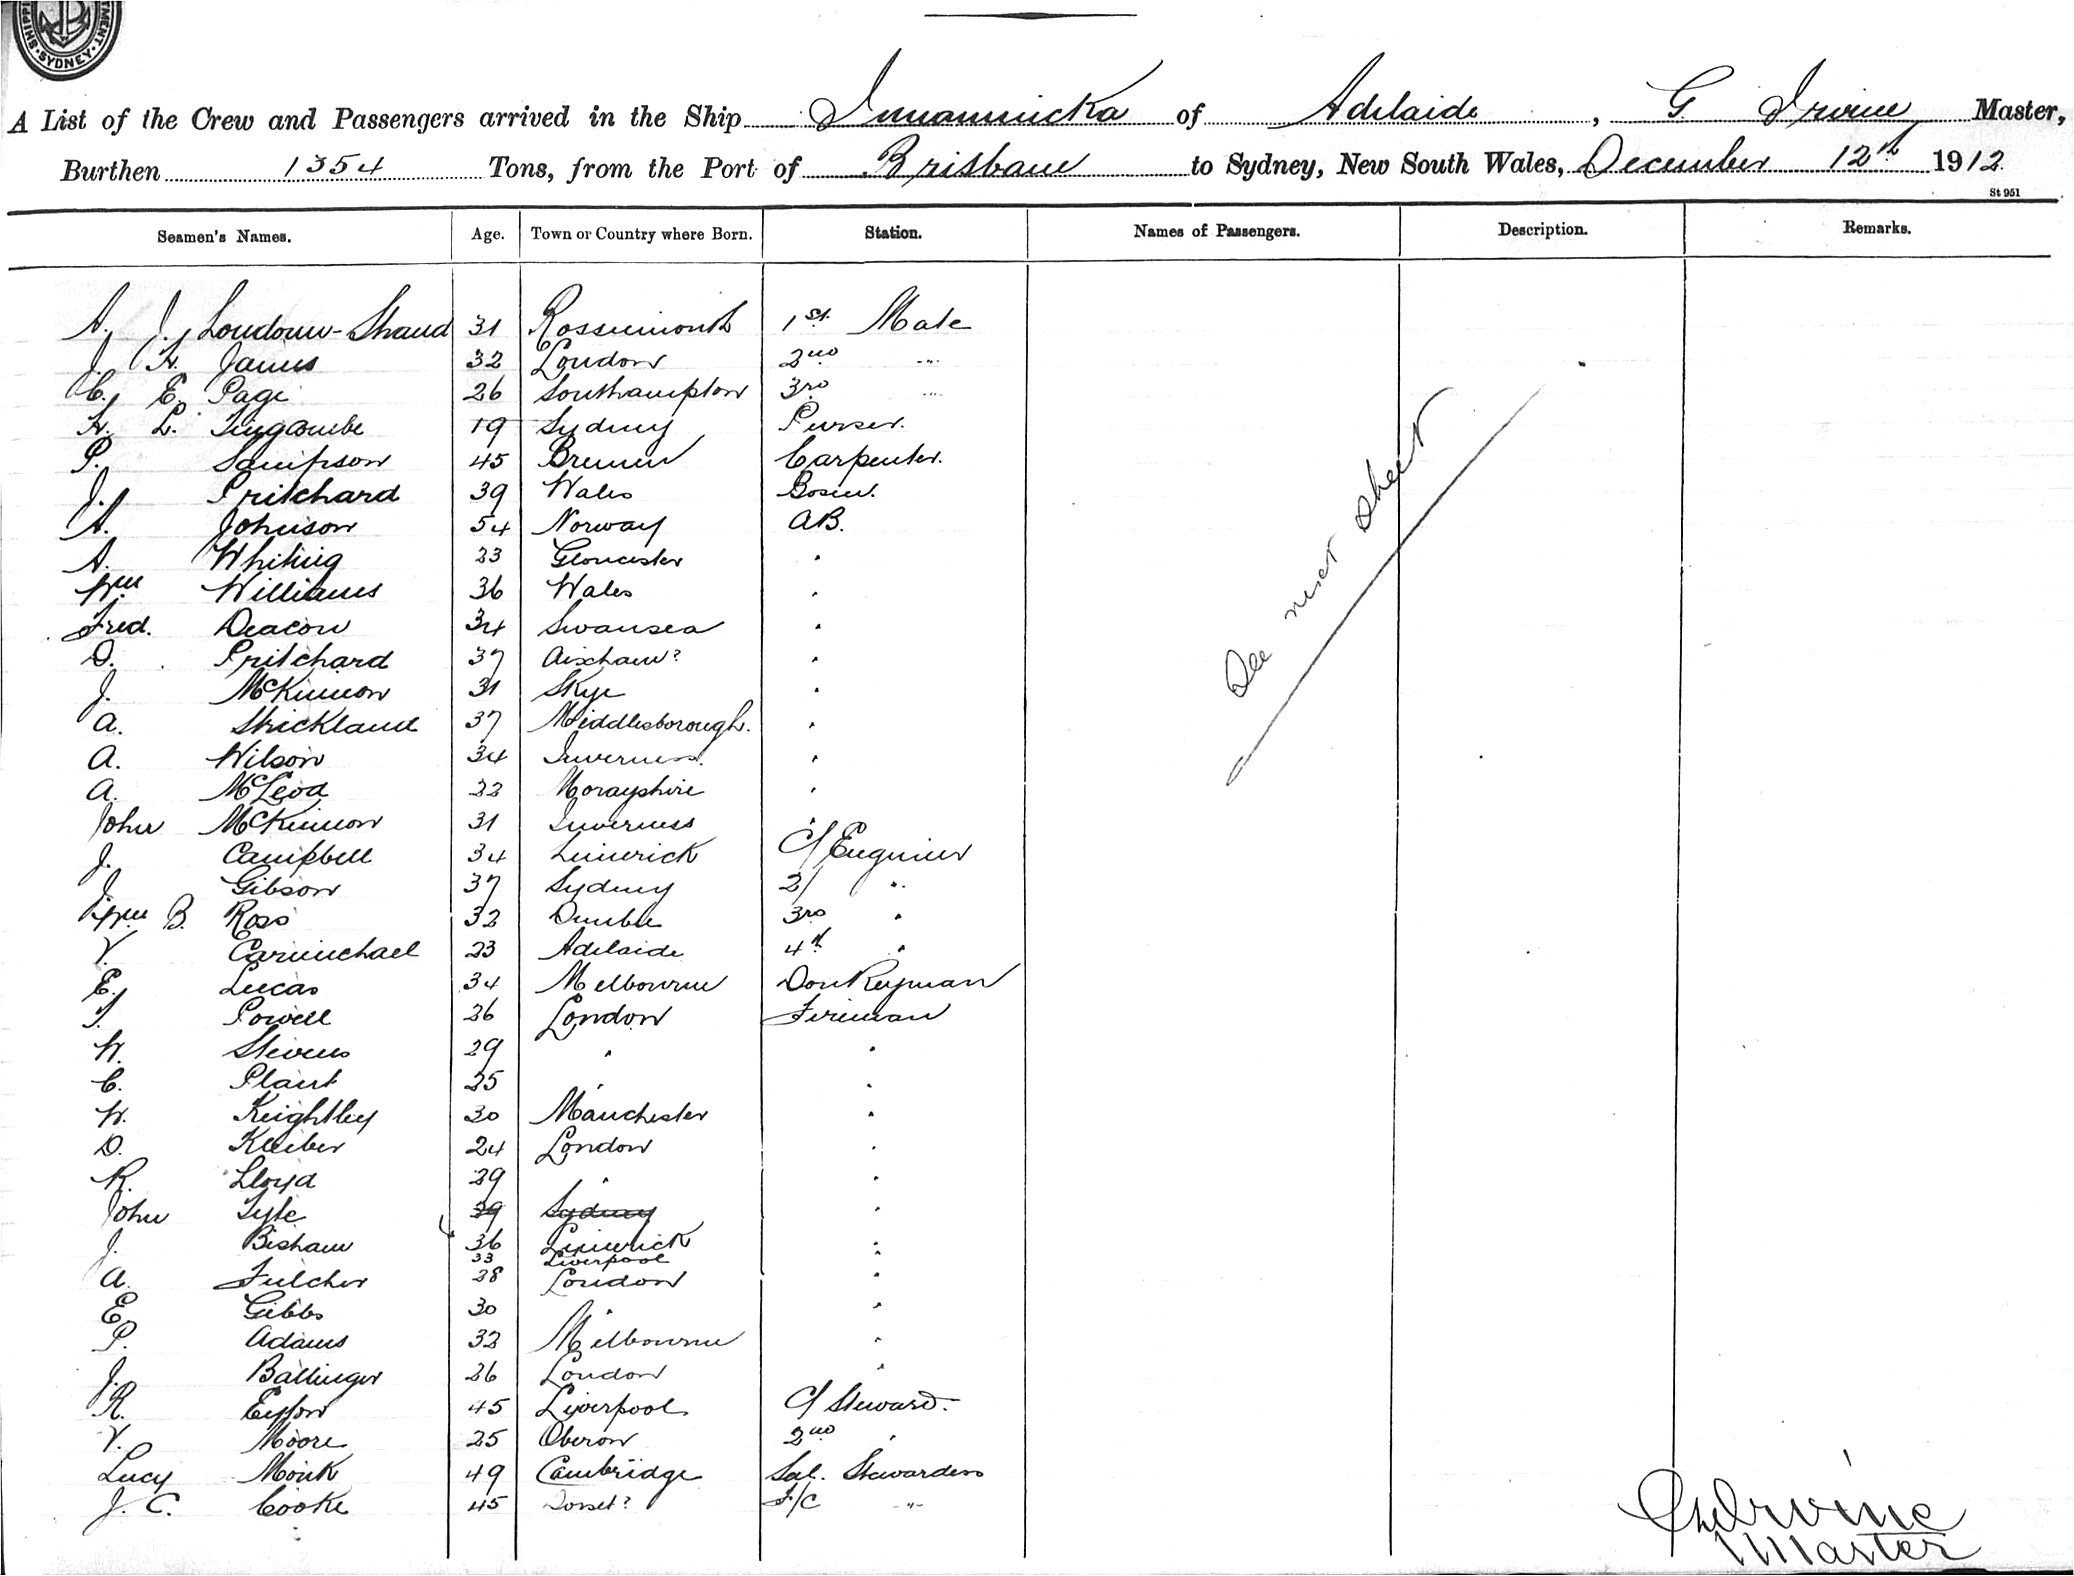 SHIPPI MENT. SYDNEY.
A List of the Crew and Passengers arrived in the Ship Innamincka of Adelaide, G. Irvine Master,
Burthen 1354 Tons, from the Port of Brisbane to Sydney, New South Wales, December 12th 1912
St 951
Seamen's Names. Age. Town or Country where Born. Station. Names of Passengers. Description. Remarks.
A. J. Loudoun-Shand 31 1st Mate
J. H. James 32 London 2nd "
C. E. Page 26 Southampton 3rd "
H. L. Tingcombe 19 Sydney Purser.
P. Sampson 45 Bremen Carpenter.
J. Pritchard 39 Wales Bosun.
A. Johnson 54 Norway AB.
A. Whiting 23 Gloucester "
Wm Williams 36 Wales "
Fred. Deacon 34 Swansea "
D. Pritchard 37 "
J. McKinnon 31 Skye "
A. Strickland 37 Middlesborough. "
A. Wilson 34 Inverness. "
A. McLeod 22 Morayshire "
John McKinnon 31 Inverness "
J. Campbell 34 Limerick C/Engineer
J. Gibson 37 Sydney 2/ "
Wm B. Ross 32 Dundee 3rd "
V. Carmichael 23 Adelaide 4th "
E. Lucas 34 Melbourne Donkeyman
T. Powell 26 London Fireman
W. Stevens 29 " "
C. Plant 25 " "
W. Keightley 30 Manchester "
D. Kleiber 24 London "
R. Lloyd 29 " "
John Tyle 29 Sydney "
J. Bisham 36 Limerick "
33 Liverpool "
A. Fulcher 28 London "
E. Gibbs 30 " "
P. Adams 32 Melbourne "
J. Ballinger 26 London "
R. 45 Liverpool C/ Steward.
V. Moore 25 Oberon 2nd "
Lucy Monk 49 Cambridge Sal. Stewardess
J. C. Cooke 45 Dorset? F/C "
See next sheet
G Irvine
Master